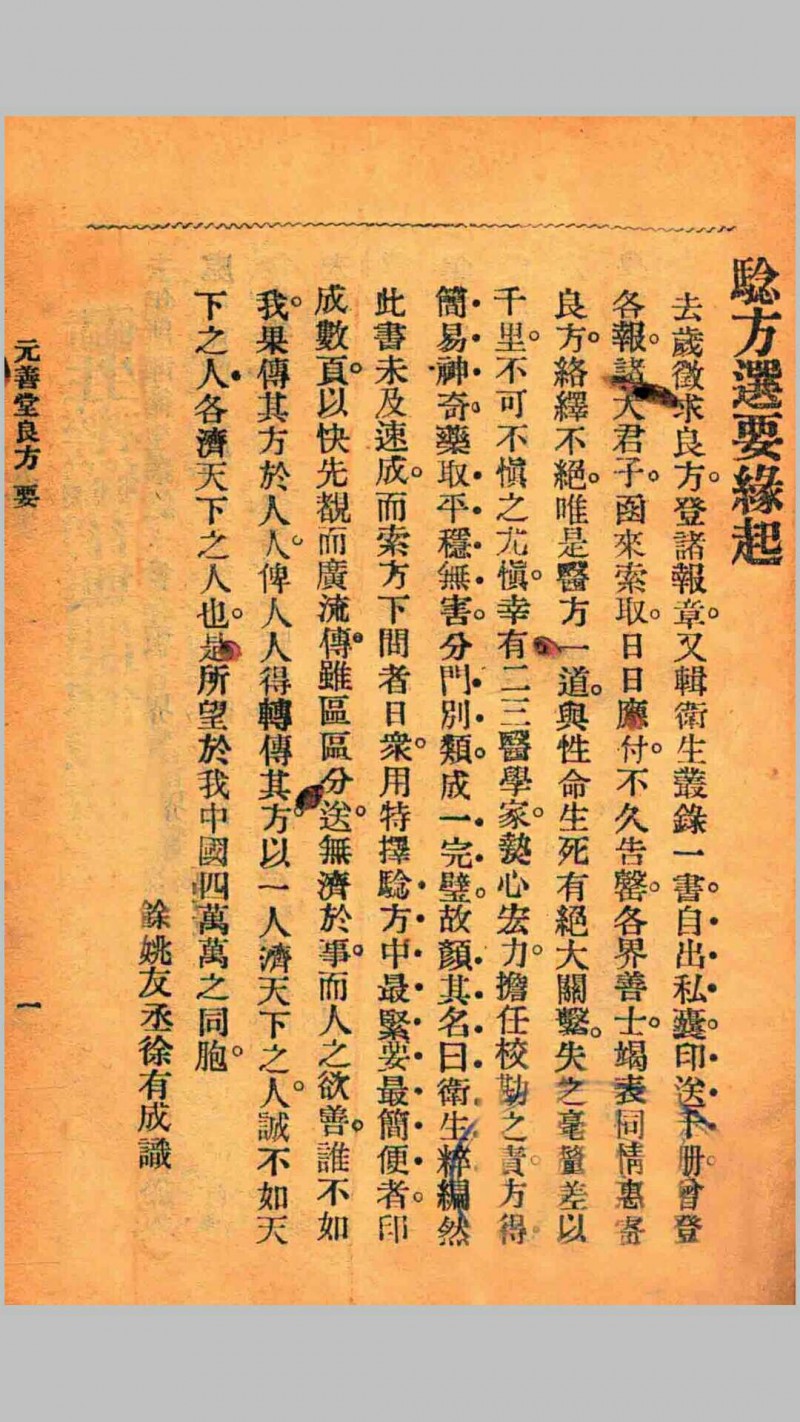 騐方選要緣起
去歲徵求良方。登諸報章。又輯衛生叢錄一書。自出私囊。印送千册。曾登
各報。諸大君子。函來索取。日日應付。不久告罄。各界善士。竭表同情。惠寄
良方。絡繹不絕。唯是醫方一道。與性命生死有絕大關繫。失之毫釐差以
千里。不可不愼之尤愼。幸有二三醫學家。熱心宏力。擔任校勘之責。方得
簡易神奇。藥取平穩無害。分門別類。成一完璧。故顏其名曰衛生粹編。然
此書未及速成。而索方下問者日衆。用特擇騐方中最緊要最簡便者。印
成數頁。以快先覩而廣流傳。雖區區分送。無濟於事。而人之欲善。誰不如
我。果傳其方於人人。俾人人得轉傳其方。以一人濟天下之人。誠不如天
下之人各濟天下之人也。是所望於我中國四萬萬之同胞。
餘姚友丞徐有成識
元善堂良方 要
一